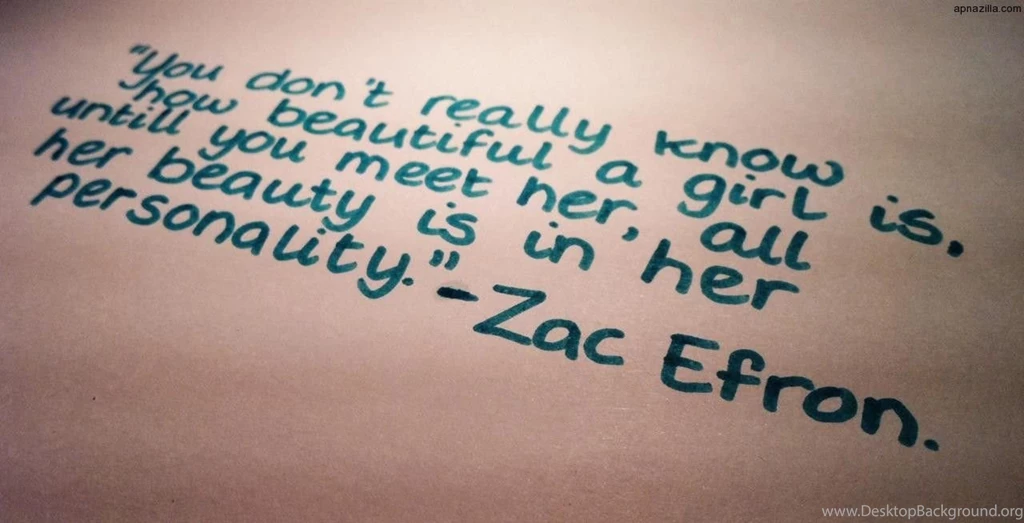 apnazilla.com
"You don't really know is,
how beautiful a girl is,
untill you meet her, all
her beauty is in her
personality." -Zac Efron.
www.DesktopBackground.org